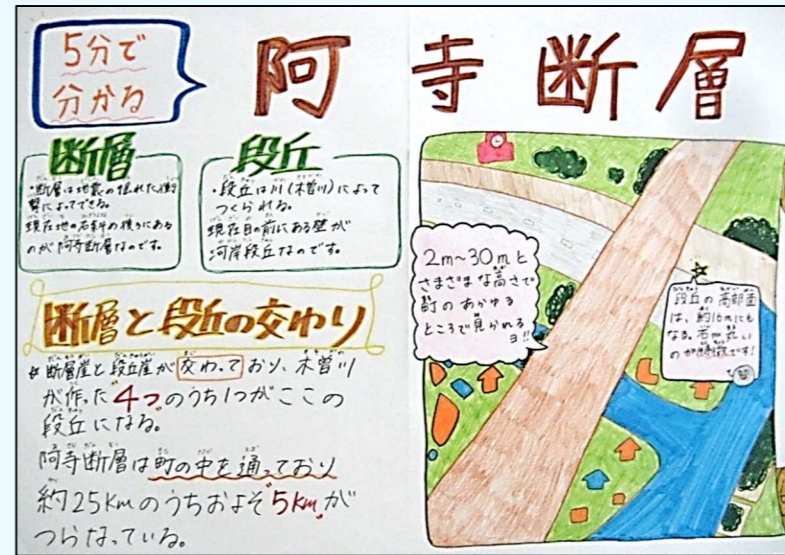 5分で
分かる
阿寺断層
断層
・断層は地震の揺れた衝
撃によってできる。
現在地の右斜の後ろにある
のが阿寺断層なのです。
段丘
・段丘は川(木曽川)によって
つくられる。
現在目の前にある壁が
河岸段丘なのです。
断層と段丘の交わり
断層崖と段丘崖が交わっており、木曽川
が作った"4つ"のうち1つがここの
段丘になる。
阿寺断層は町の中を通っており
約25kmのうちおよそ"5km"が
つらなっている。
2m～30mと
さまざまな高さで
町のあらゆる
ところで見かれる
ヨ!!
段丘の
は、約16mにも
なる。石が丸い
のが特徴です!